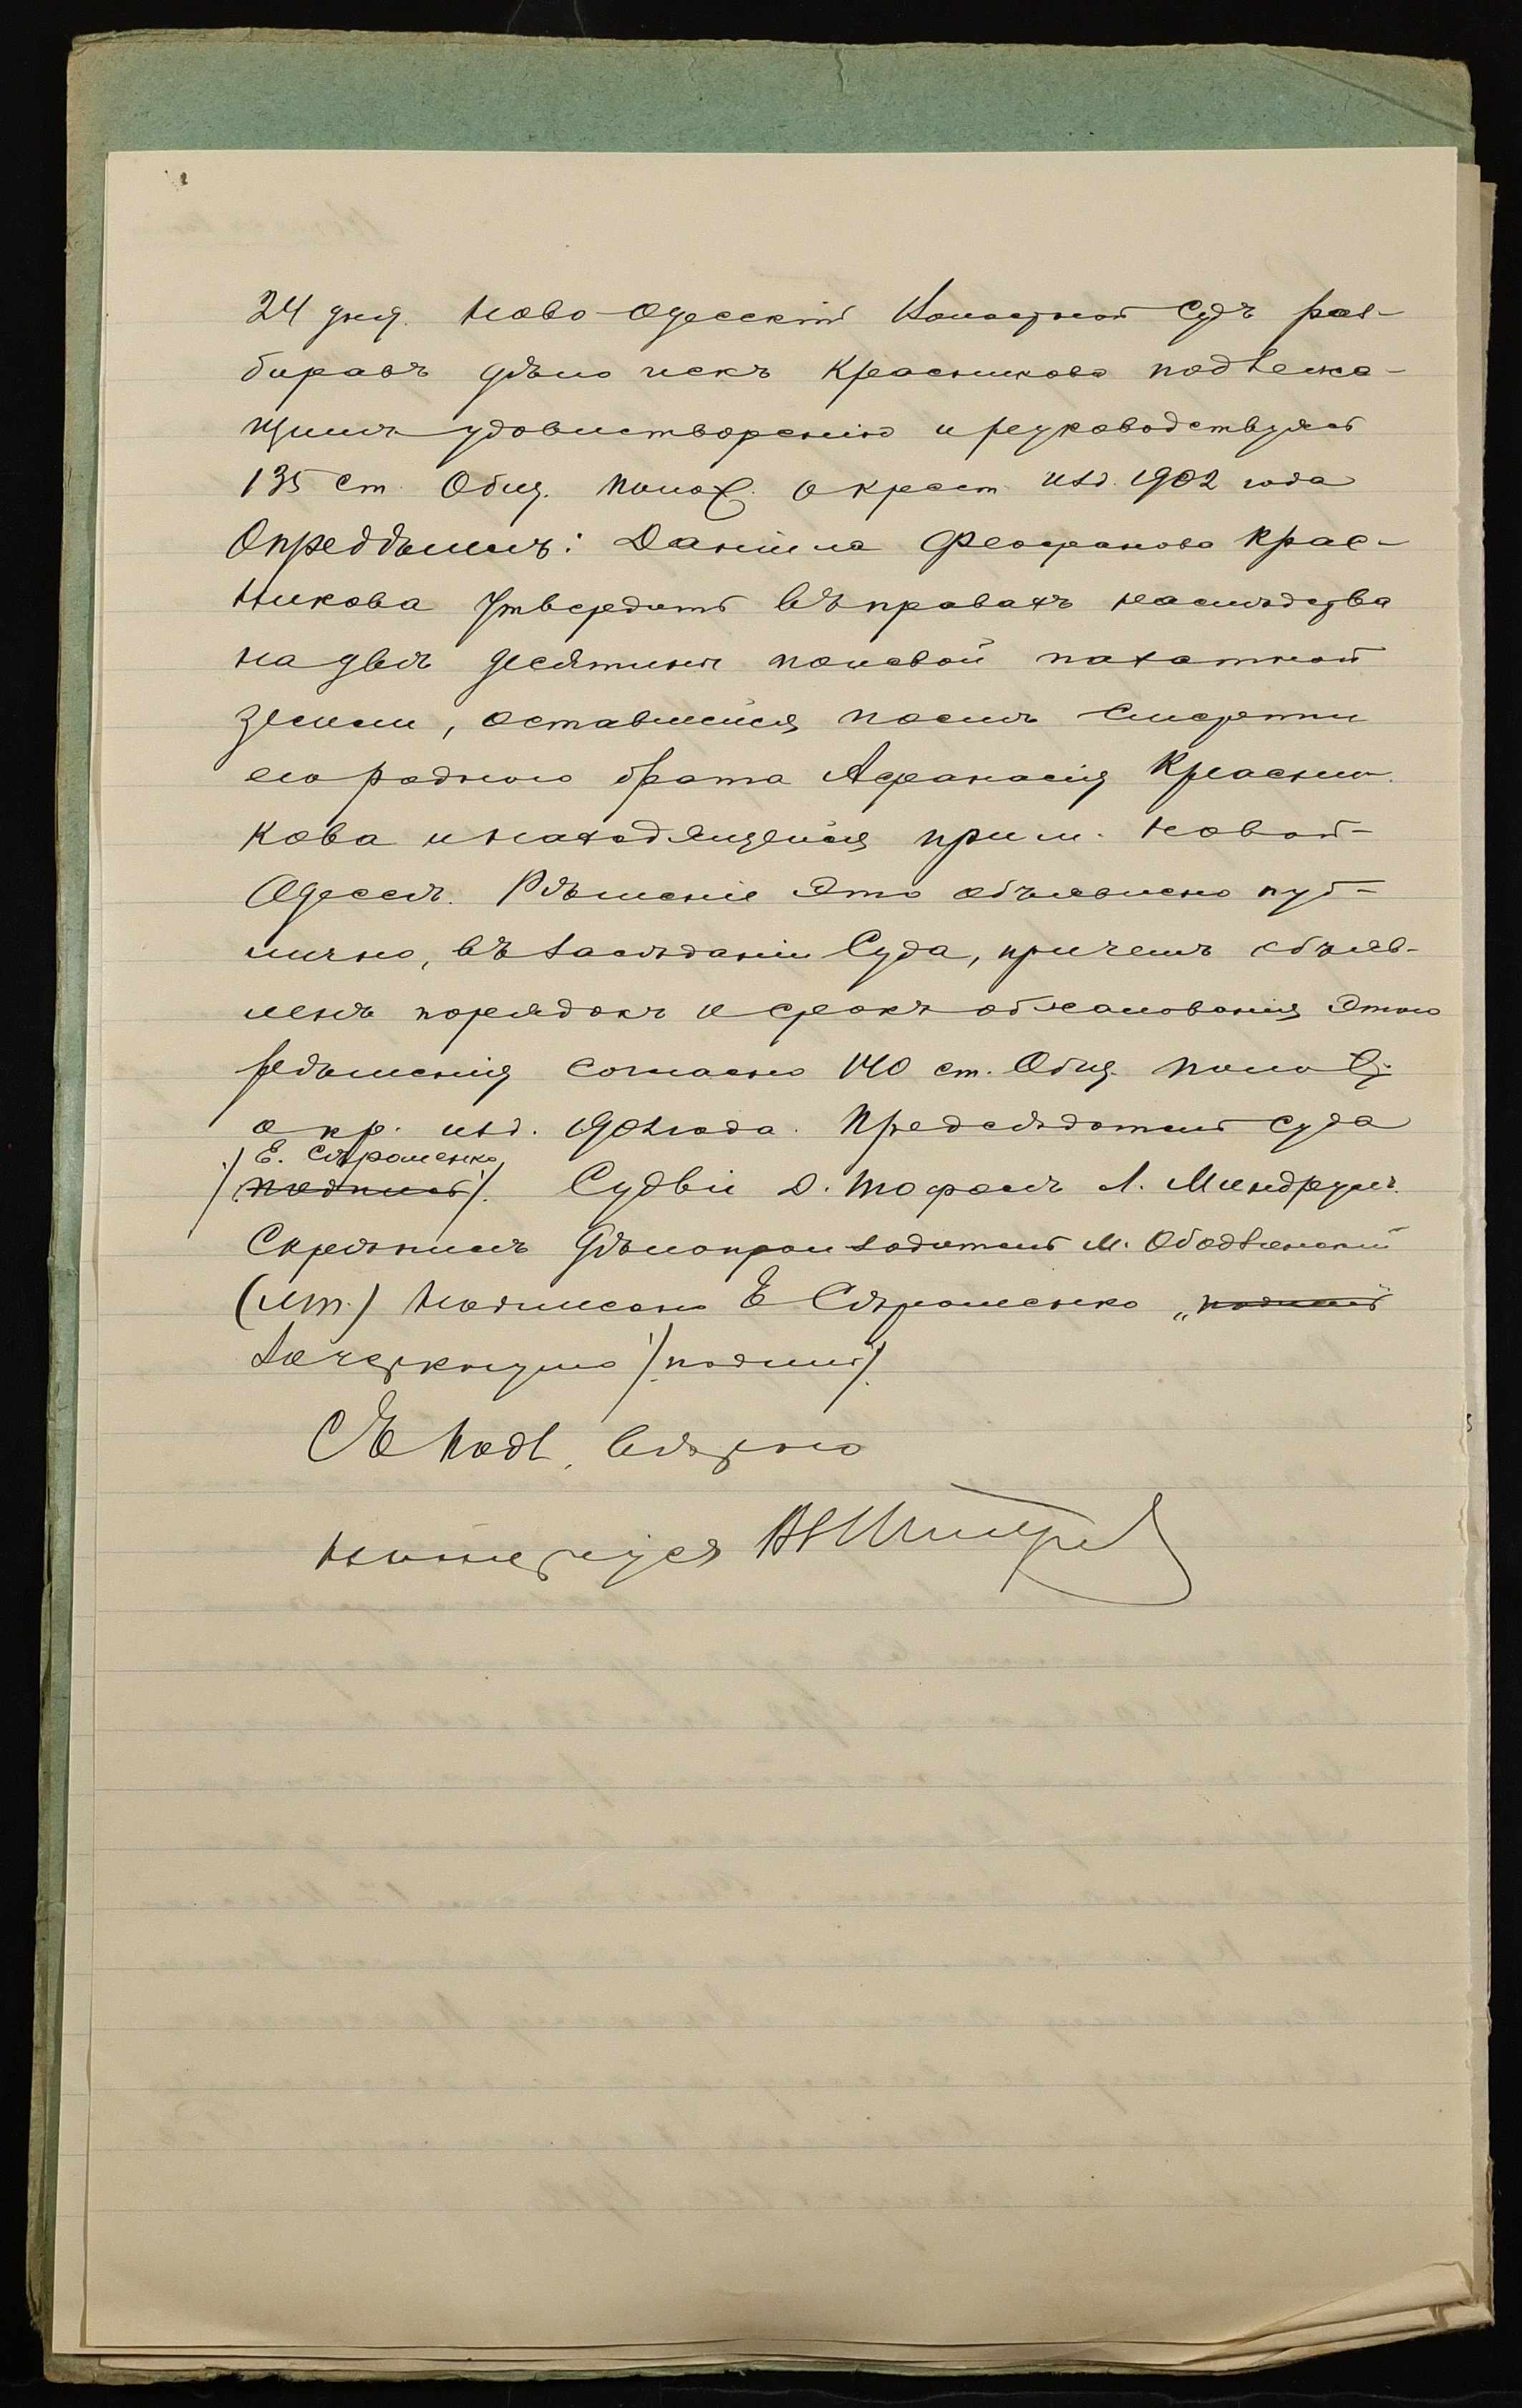 24 дня. Ново-Одесскій Волостной Судъ раз-
биравъ дѣло искъ Красникова подлежа-
щимъ удовлетворенію и руководствуясь
135 ст. Общ. Полож. о крест. изд. 1902 года
Опредѣлилъ: Даніила Феофанова Крас-
никова Утвердить въ правахъ наслѣдства
на двѣ десятины полевой пахатной
земли, оставшейся послѣ смерти
его родного брата Афанасія Красни-
кова и находящейся при м. Новой-
Одессѣ. Рѣшеніе это объявлено пуб-
лично, въ засѣданіи Суда, причемъ объяв-
ленъ порядокъ и срокъ обжалованія этого
рѣшенія согласно 140 ст. Общ. Полож.
о кр. изд. 1902 года. Предсѣдатель Суда
/ Е. Сѣроменко
/подпись/. Судьи Д. Тофанъ Л. Миндрулъ.
Скрѣпилъ Дѣлопроизводитель М. Ободзинскій
(мп.) Надписано Е Сѣроменко „подпись
Зачеркнуто /подпись/.
Съ подл. вѣрно